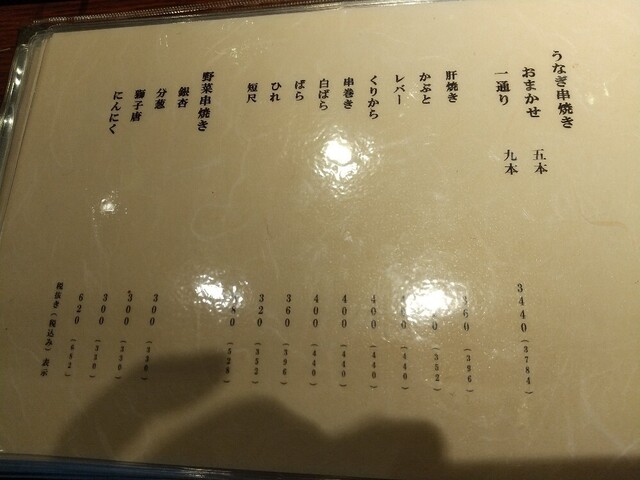 うなぎ串焼き
おまかせ 五本
一通り 九本 3440(3784)
肝焼き 360(396)
かぶと (352)
レバー (440)
くりから 400(440)
串巻き 400(440)
白ばら 400(440)
ばら 360(396)
ひれ 320(352)
短尺 (528)
野菜串焼き
銀杏 300(330)
分葱 300(330)
獅子唐 300(330)
にんにく 620(682)
税抜き(税込み)表示